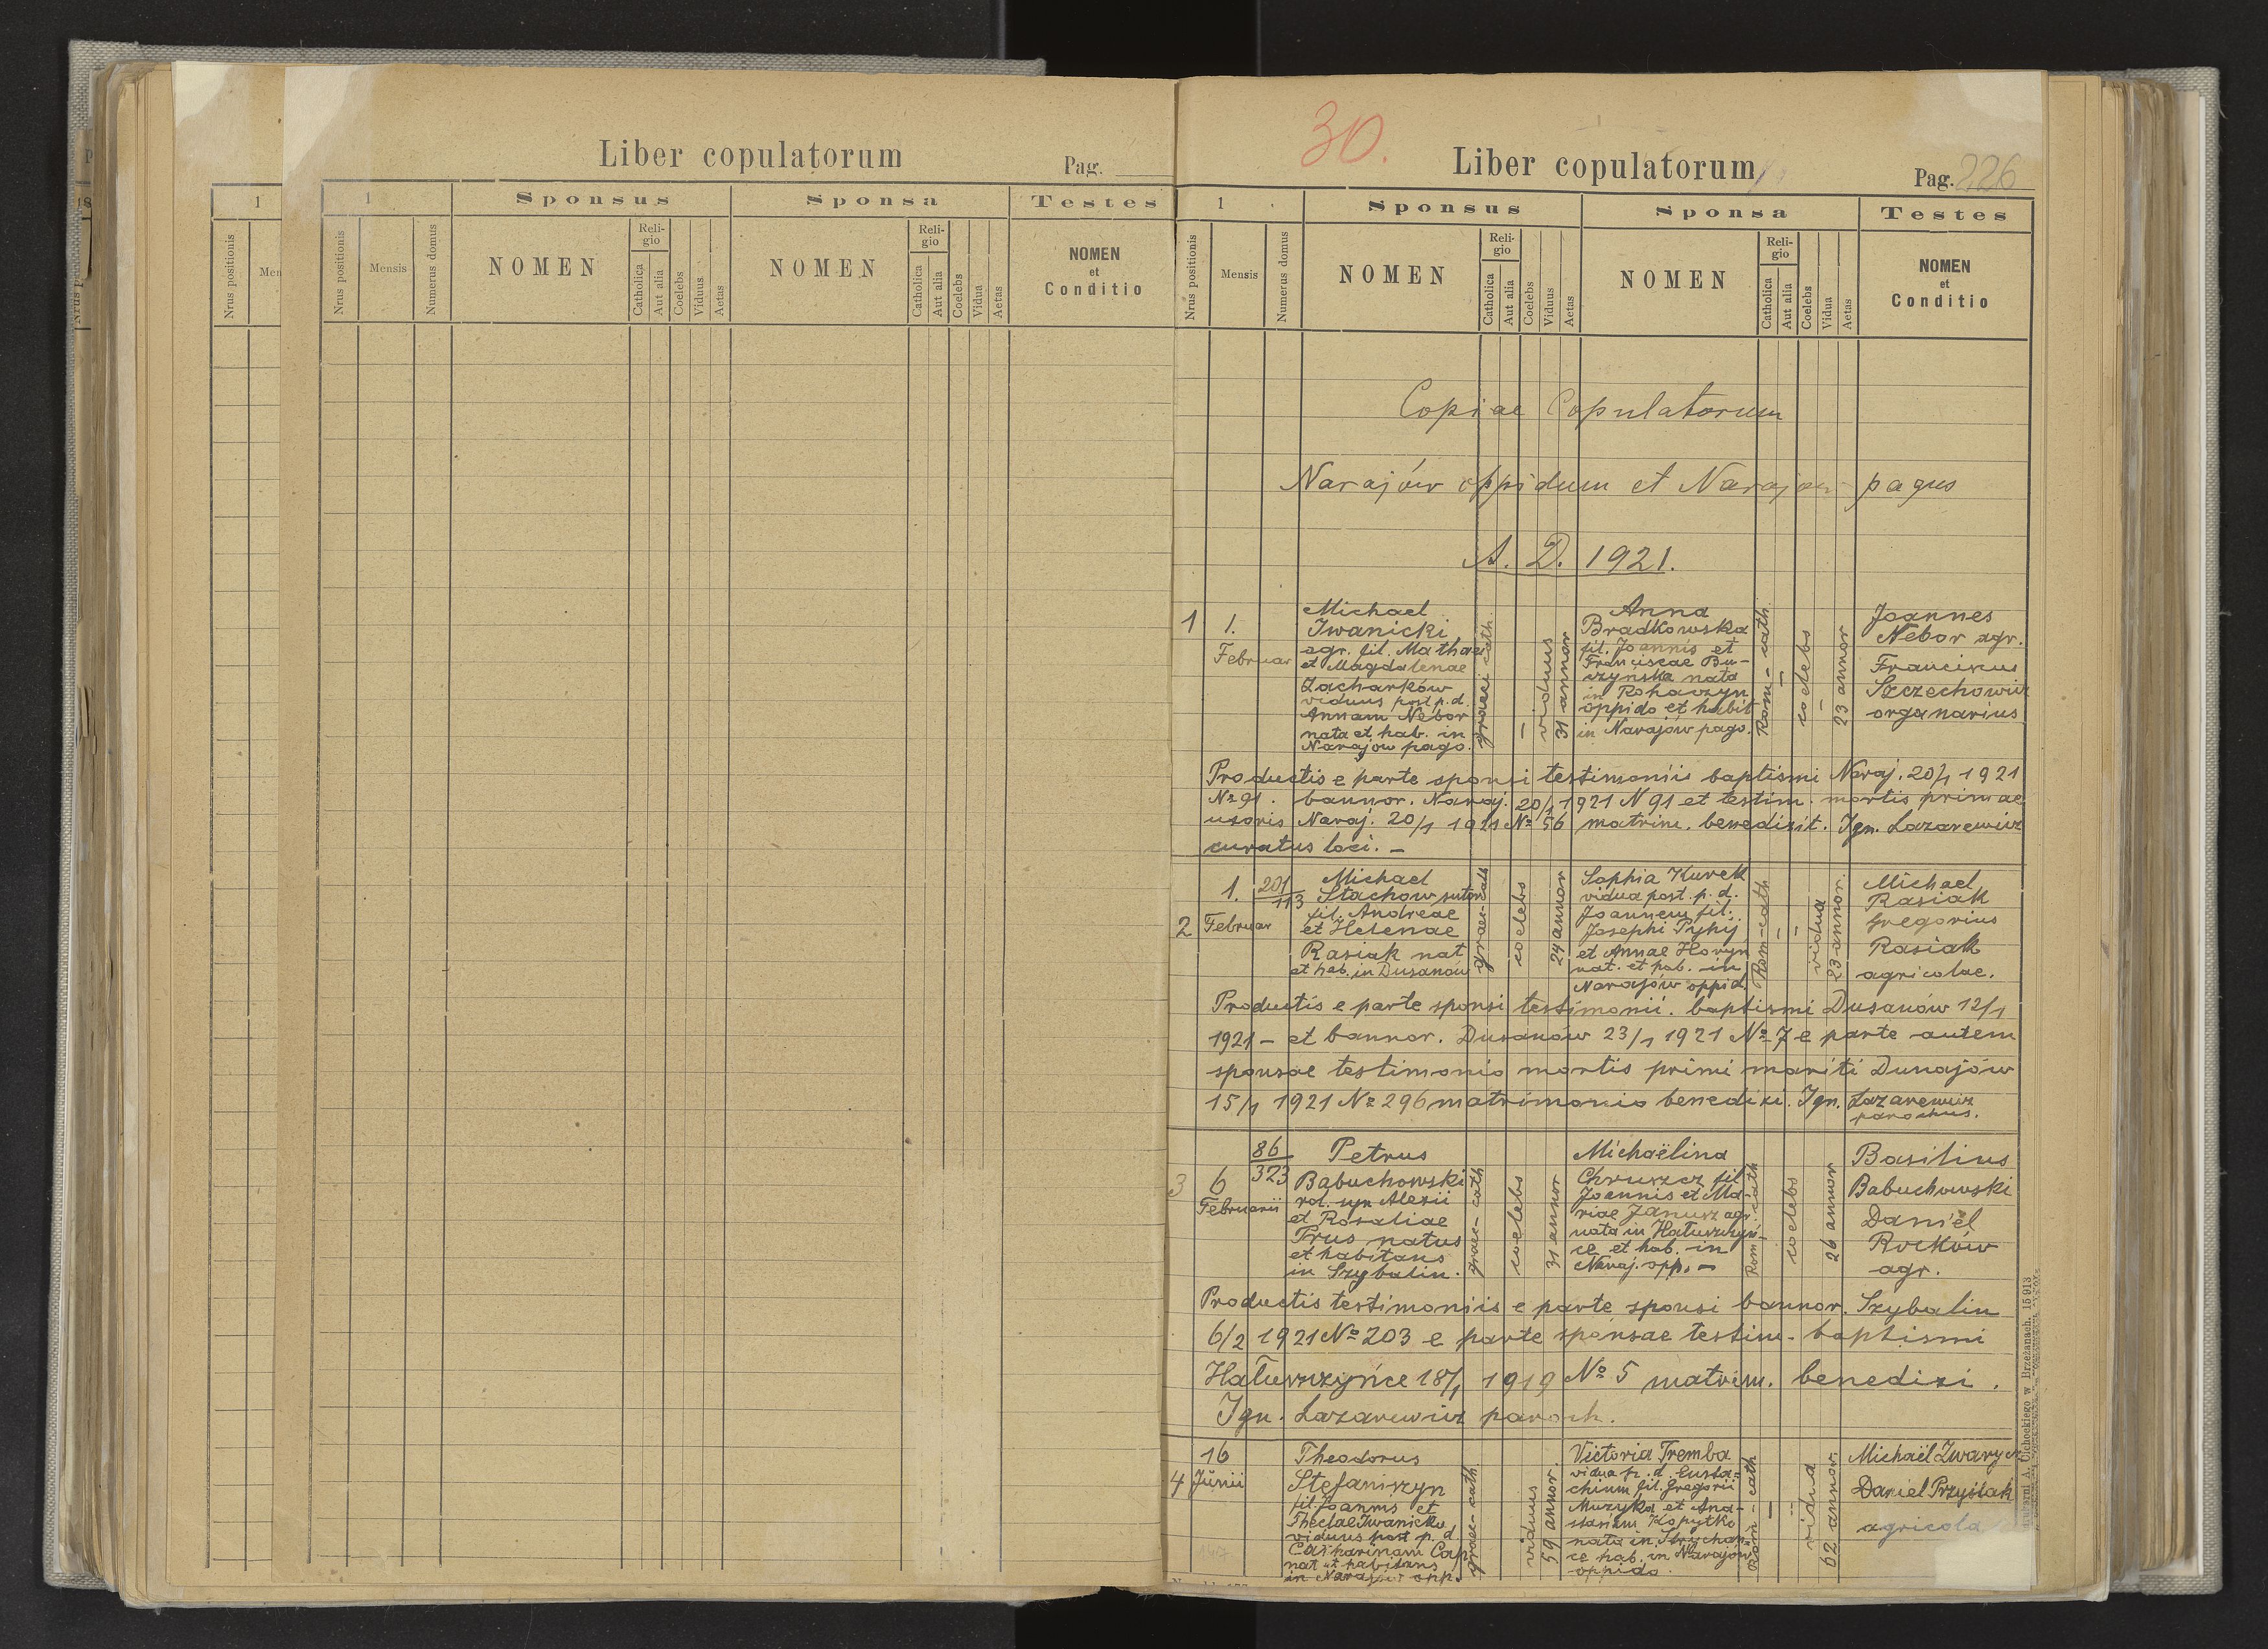 Liber copulatorum
Pag.
1
Sponsus
Sponsa
Testes
Nrus positionis
Mensis
Numerus domus
NOMEN
Religio
Catholica
Aut alia
Coelebs
Viduus
Aetas
NOMEN
Religio
Catholica
Aut alia
Coelebs
Vidua
Aetas
NOMEN
et
Conditio
30.
Liber copulatorum
Pag. 226
1
Sponsus
Sponsa
Testes
Nrus positionis
Mensis
Numerus domus
NOMEN
Reli-
gio
Catholica
Aut alia
Coelebs
Viduus
Aetas
NOMEN
Reli-
gio
Catholica
Aut alia
Coelebs
Vidua
Aetas
NOMEN
et
Conditio
Copiae Copulatorum
Narajów oppidum et Narajow pagus
A. D. 1921.
1
1.
Februar
Michael
Iwanicki
agr. fil. Mathaei
et Magdalenae
Zacharków
viduus post p. d.
Annam Nebor
nata et hab. in
Narajów pago.
graeci cath.
–
viduus
31 annor
Anna
Bradkowska
fil. Joannis et
Franciscae Bu-
czynska nata
in Rohaczyn
oppido et habit
in Narajów pago.
Rom-cath
–
coelebs
–
23 annor
Joannes
Nebor agr.
Franciscus
Szczechowicz
organarius
Productis e parte sponsi testimoniis baptismi Naraj. 20/1 1921
No 91. bannor. Naraj. 20/1 1921 N 91 et testim. mortis primae
uxoris Naraj. 20/1 1921 No 56 matrim. benedixit. Ign. Lazarewicz
curatus loci. –
2
1.
Februar
201/113
Michael
Stachow sutor
fil. Andreae
et Helenae
Rasiak nat
et hab. in Dusanów
graec-cath
coelebs
24 annor
Sophia Kurek
vidua post. p. d.
Joannem fil.
Josephi Pyhij
et Annae Horyn
nat. et hab. in
Narajów oppid.
Rom-cath
–
–
vidua
23 annor.
Michael
Rasiak
Gregorius
Rasiak
agricolae.
Productis e parte sponsi testimonii. baptismi Dusanów 12/1
1921 – et bannor. Dusanów 23/1 1921 No 7 e parte autem
sponsae testimonio mortis primi mariti Dunajów
15/1 1921 No 296 matrimonio benedixi. Ign. Lazarewicz
parochus.
3
6
Februarii
86/323
Petrus
Babuchowski
rol. syn Alexii
et Rosaliae
Prus natus
et habitans
in Szybalin.
graec-cath
coelebs
31 annor
Michaëlina
Chruszcz fil
Joannis et Ma-
riae Janusz agr.
nata in Hałuszczyń-
ce et hab. in
Naraj. opp. –
Rom-cath
coelebs
26 annor
Basilius
Babuchowski
Daniel
Roćków
agr.
Productis testimoniis e parte sponsi bannor. Szybalin
6/2 1921 No 203 e parte sponsae testim. baptismi
Hałuszczyńce 18/1 1919 No 5 matrim. benedixi.
Ign. Lazarewicz paroch.
4
16
Junii
Theodorus
Stefaniszyn
fil. Joannis et
Theclae Iwanicka
viduus post p. d.
Catharinam Cap
nat et habitans
in Narajów opp.
graec-cath.
viduus
59 annor.
Victoria Tremba
vidua p. d. Eusta-
chium fil. Gregorii
Muzyka et Ana-
stasiam Kopytko
nata in Strychan-
ce hab. in Narajów
oppido.
Rom-cath
–
vidua
62 annor.
Michaël Zwarycz
Daniel Przyślak
agricola
Drukarni A. Cichockiego w Brzeżanach. 15913